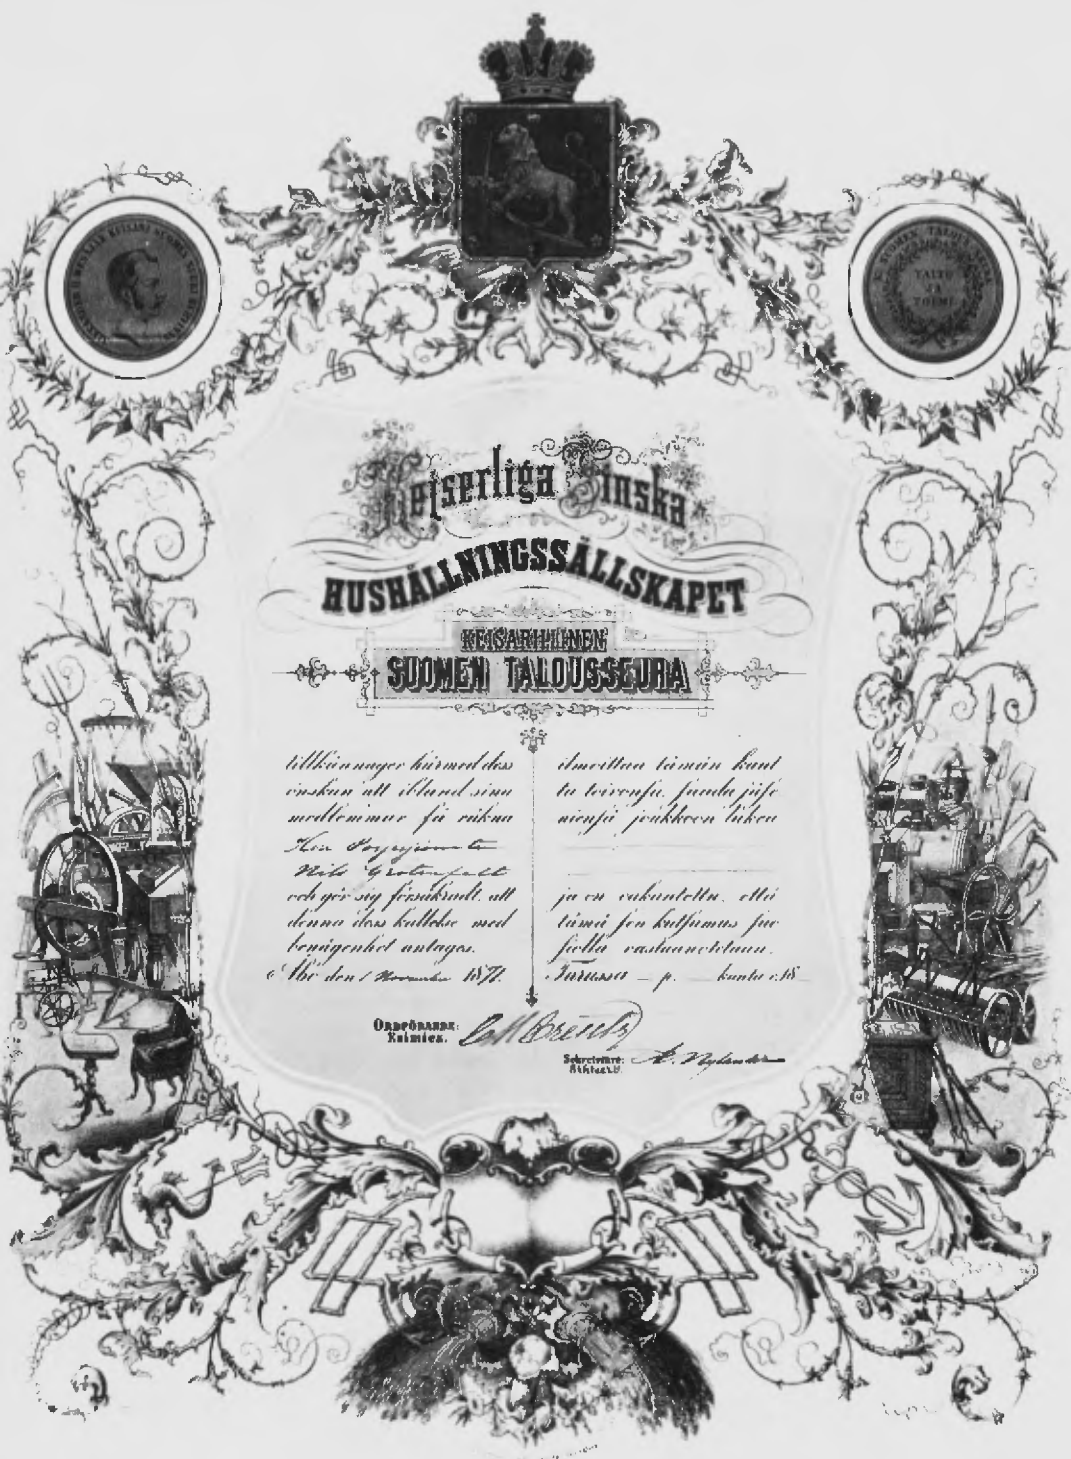 K. SUOMEN TALOUS SEURA
TAITO
JA
TOIMI
Kejserliga Finska
HUSHÅLLNINGSSÄLLSKAPET
KEISARILLINEN
SUOMEN TALOUSSEURA
tillkännager härmed dess
önskan att ibland sina
medlemmar få räkna
Nils Grotenfelt
och gör sig försäkradt, att
denna dess kallelse med
benägenhet antages.
Åbo den 1 November 1871.
ilmoittaa tämän kaut
ta toivonsa, saada jäse
niensä joukkoon lukea
ja on vakuutettu, että
tämä sen kutsumus suo
siolla vastaanotetaan.
Turussa p. kuuta v. 18
ORDFÖRANDE:
Esimies.
Sekreterare:
Sihteeri.
A. Nylander